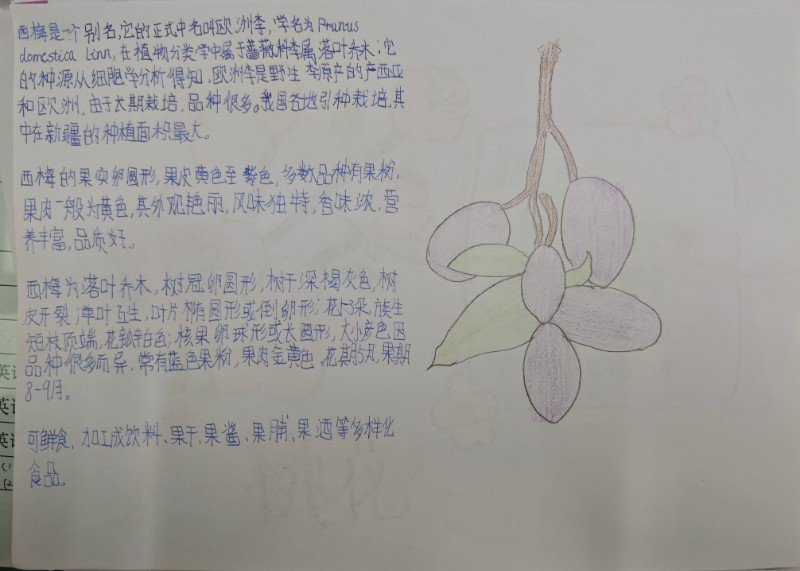 西梅是一个别名,它的正式中名叫欧洲李,学名为Prunus
domestica Linn,在植物分类学中属于蔷薇科李属,落叶乔木;它
的种源从细胞学分析得知,欧洲李是野生李原产的产西亚
和欧洲,由于长期栽培,品种很多。我国各地引种栽培,其
中在新疆的种植面积最大。
西梅的果实卵圆形,果皮黄色至紫色,多数品种有果粉,
果肉一般为黄色,其外观艳丽,风味独特,香味浓,营
养丰富,品质好。
西梅为落叶乔木,树冠卵圆形,树干深褐灰色,树
皮开裂;单叶互生,叶片椭圆形或倒卵形;花1-3朵,簇生
短枝顶端,花瓣白色;核果卵球形或长圆形,大小产色因
品种很多而异,常有蓝色果粉,果肉金黄色。花期5月,果期
8-9月。
可鲜食,加工成饮料、果干、果酱、果脯、果酒等多样化
食品。
英语
英语
英语